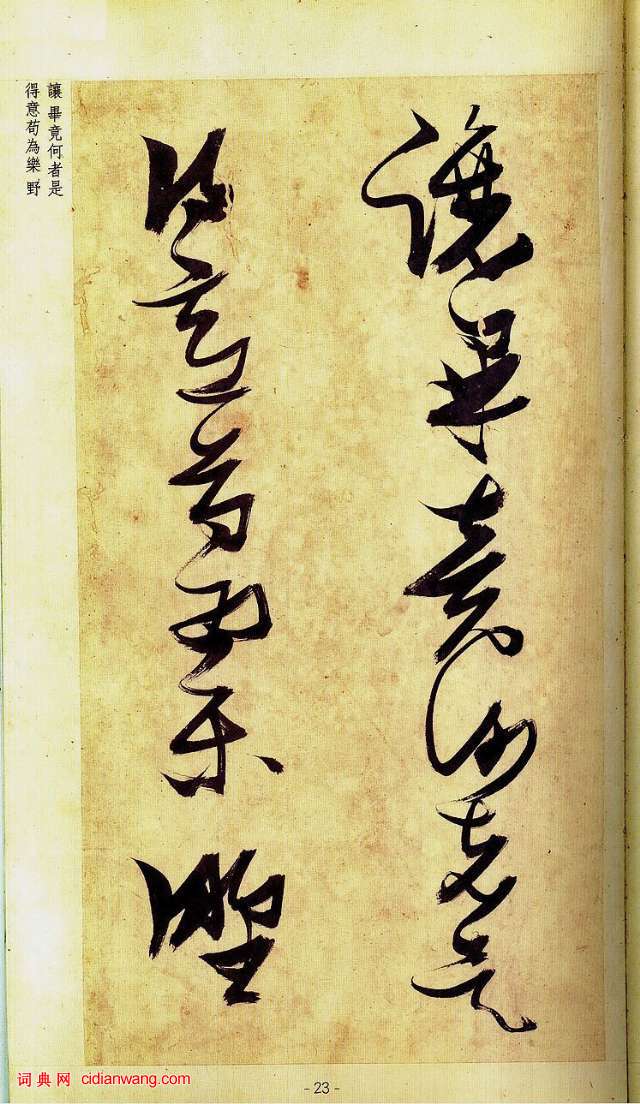 讓畢竟何者是
得意苟為樂野
讓畢竟何者是
得意苟為樂野
- 23 -
词典网 cidianwang.com